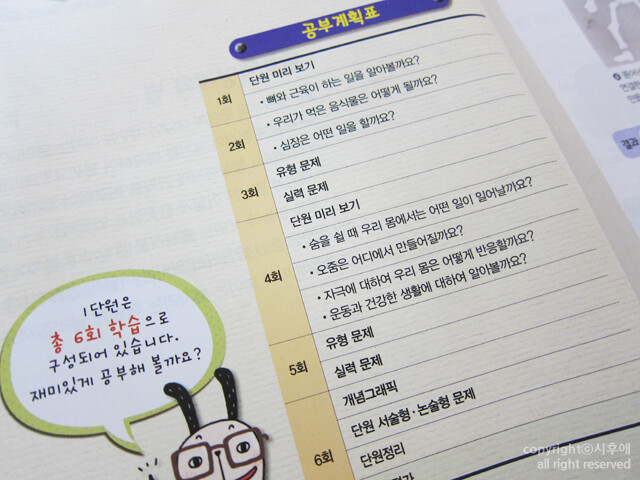 공부계획표
단원 미리 보기
1회
• 뼈와 근육이 하는 일을 알아볼까요?
• 우리가 먹은 음식물은 어떻게 될까요?
2회
• 심장은 어떤 일을 할까요?
유형 문제
3회
실력 문제
단원 미리 보기
• 숨을 쉴 때 우리 몸에서는 어떤 일이 일어날까요?
4회
• 오줌은 어디에서 만들어질까요?
• 자극에 대하여 우리 몸은 어떻게 반응할까요?
• 운동과 건강한 생활에 대하여 알아볼까요?
유형 문제
5회
실력 문제
개념그래픽
단원 서술형·논술형 문제
6회
단원정리
1단원은
총 6회 학습으로
구성되어 있습니다.
재미있게 공부해 볼까요?
결과
copyrightⓒ시후에
all right reserved